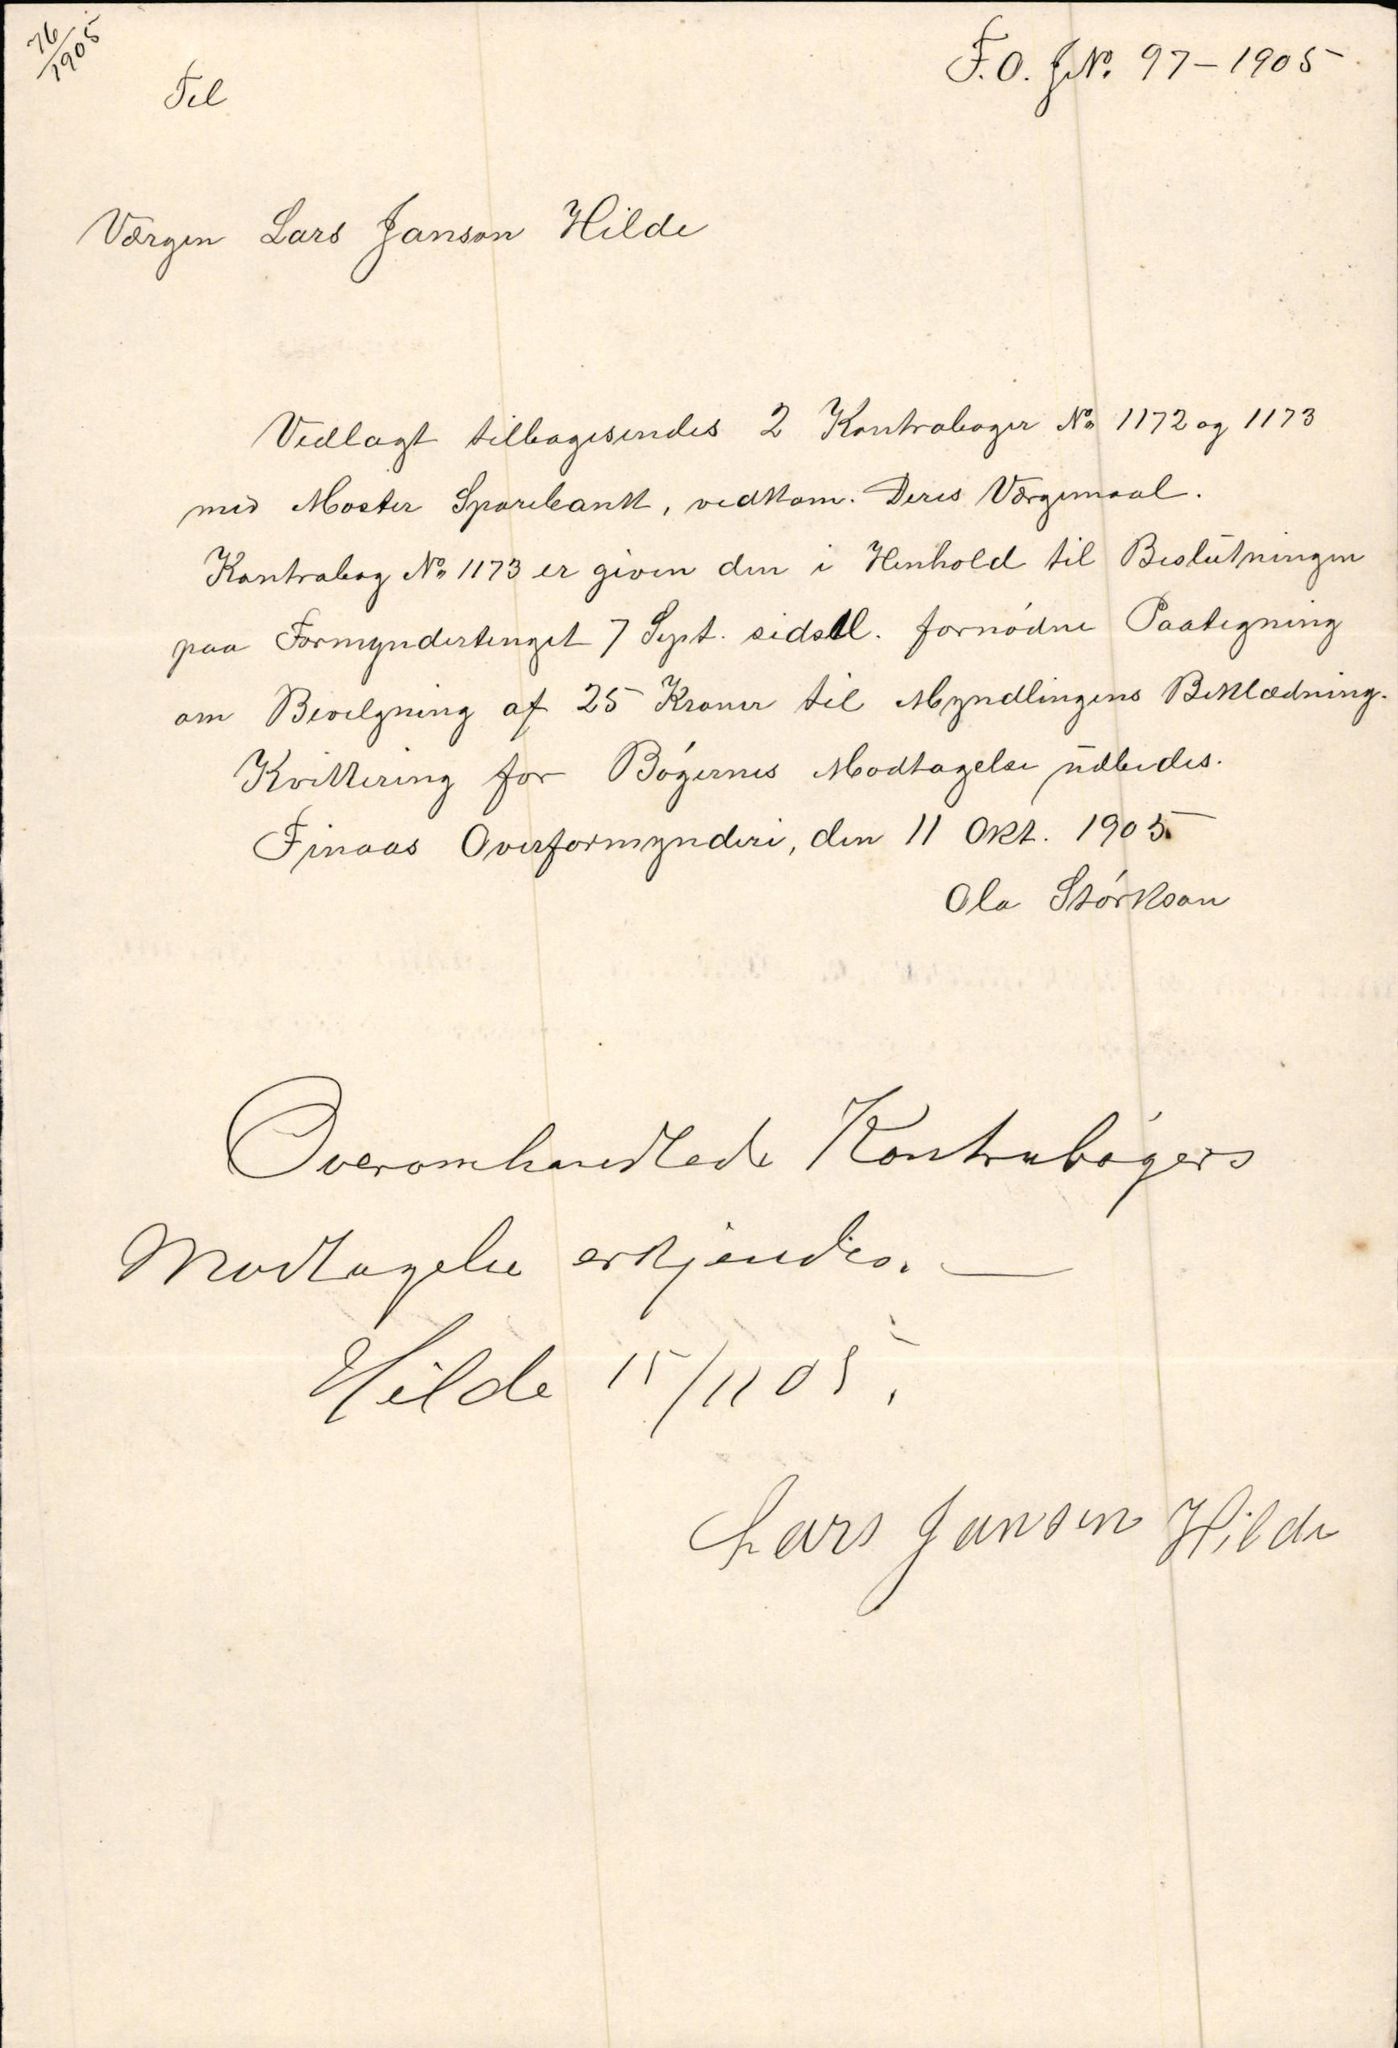 76/1905
F.O. J.No. 97-1905
Til
Værgen Lars Janson Hilde
Vedlagt tilbagesendes 2 Kontrabøger No 1172 og 1173
med Moster Sparebank, vedkom. Deres Værgemaal.
Kontrabog No 1173 er given den i Henhold til Beslutningen
paa Formyndertinget 7 Sept. sidstl. fornødne Paategning
om Bevilgning af 25 Kroner til Myndlingens Beklædning.
Kvittering for Bøgernes Modtagelse udbedes.
Finaas Overformynderi, den 11 Okt. 1905.
Ola Størkson
Overomhandlede Kontrabøgers
Modtagelse erkjendes. —
Hilde 15/11 05.
Lars Jansen Hilde